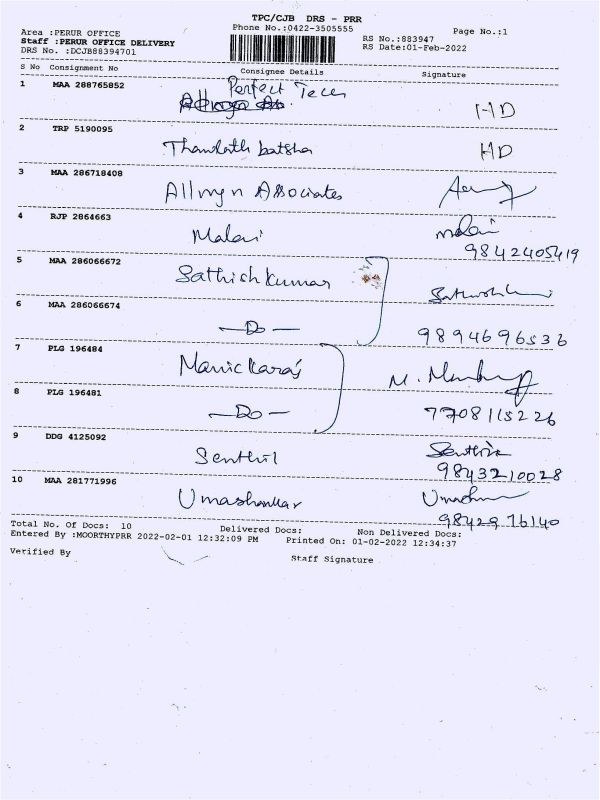 TPC/CJB DRS - PRR
Area :PERUR OFFICE Phone No.:0422-3505555 Page No.:1
Staff :PERUR OFFICE DELIVERY RS No.:883947
DRS No. :DCJB88394701 RS Date:01-Feb-2022
S No Consignment No Consignee Details Signature
1 MAA 288765852 Perfect Tech HD
2 TRP 5190095 HD
3 MAA 286718408 Associates
4 RJP 2864663 Malavi
9842405419
5 MAA 286066672 Sathish kumar
6 MAA 286066674 —Do— 9894696536
7 PLG 196484
8 PLG 196481 —Do— 7708115226
9 DDG 4125092 Senthil
9843210028
10 MAA 281771996 Umashankar
9842916140
Total No. Of Docs: 10 Delivered Docs: Non Delivered Docs:
Entered By :MOORTHYPRR 2022-02-01 12:32:09 PM Printed On: 01-02-2022 12:34:37
Verified By Staff Signature